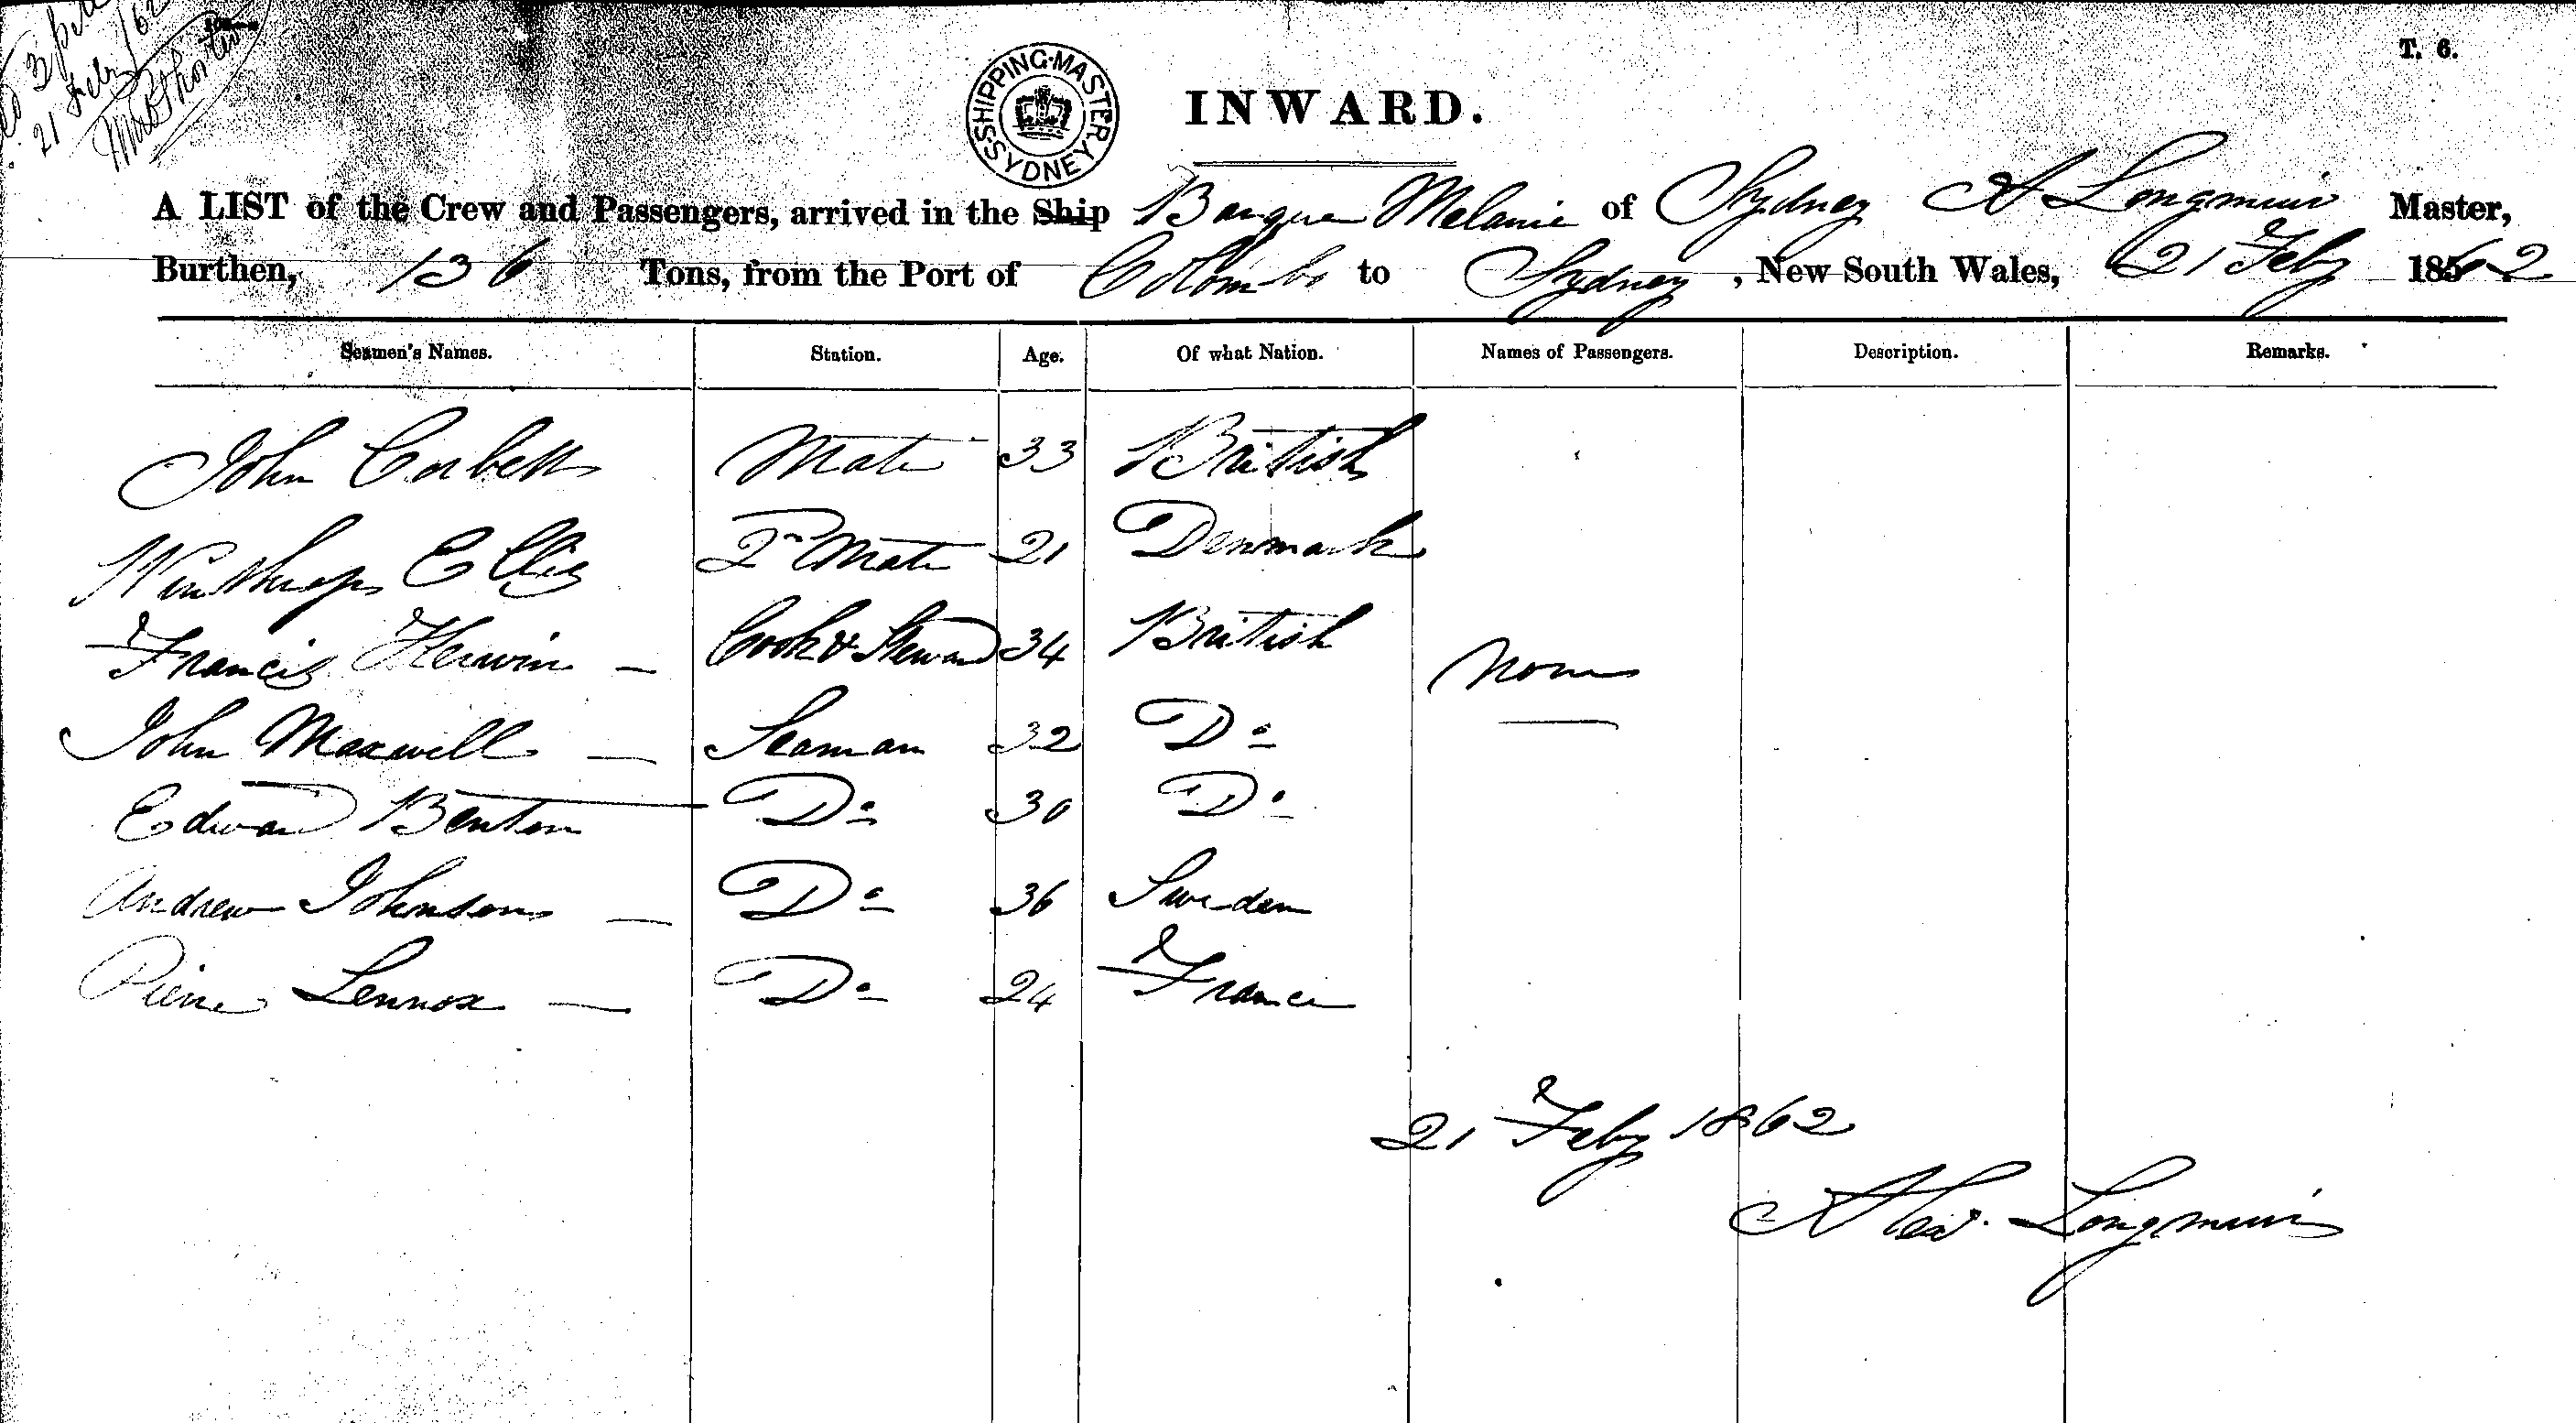 3 pm
21 Feby /62
T. 6.
SHIPPING·MASTER SYDNEY
INWARD.
A LIST of the Crew and Passengers, arrived in the Ship Barque Melanie of Sydney A Longmuir Master,
Burthen, 136 Tons, from the Port of Colombo to Sydney, New South Wales, 21 Feby 1862
Seamen's Names. Station. Age. Of what Nation. Names of Passengers. Description. Remarks.
John Corbett Mate 33 British
Winthrop Ellis 2nd Mate 21 Denmark
Francis Herwin — Cook & Steward 34 British None
John Maxwell — Seaman 32 Do
Edward Benton Do 30 Do
Andrew Johnson — Do 36 Sweden
Pierre Lennox — Do 24 France
21 Feby 1862
Alex. Longmuir